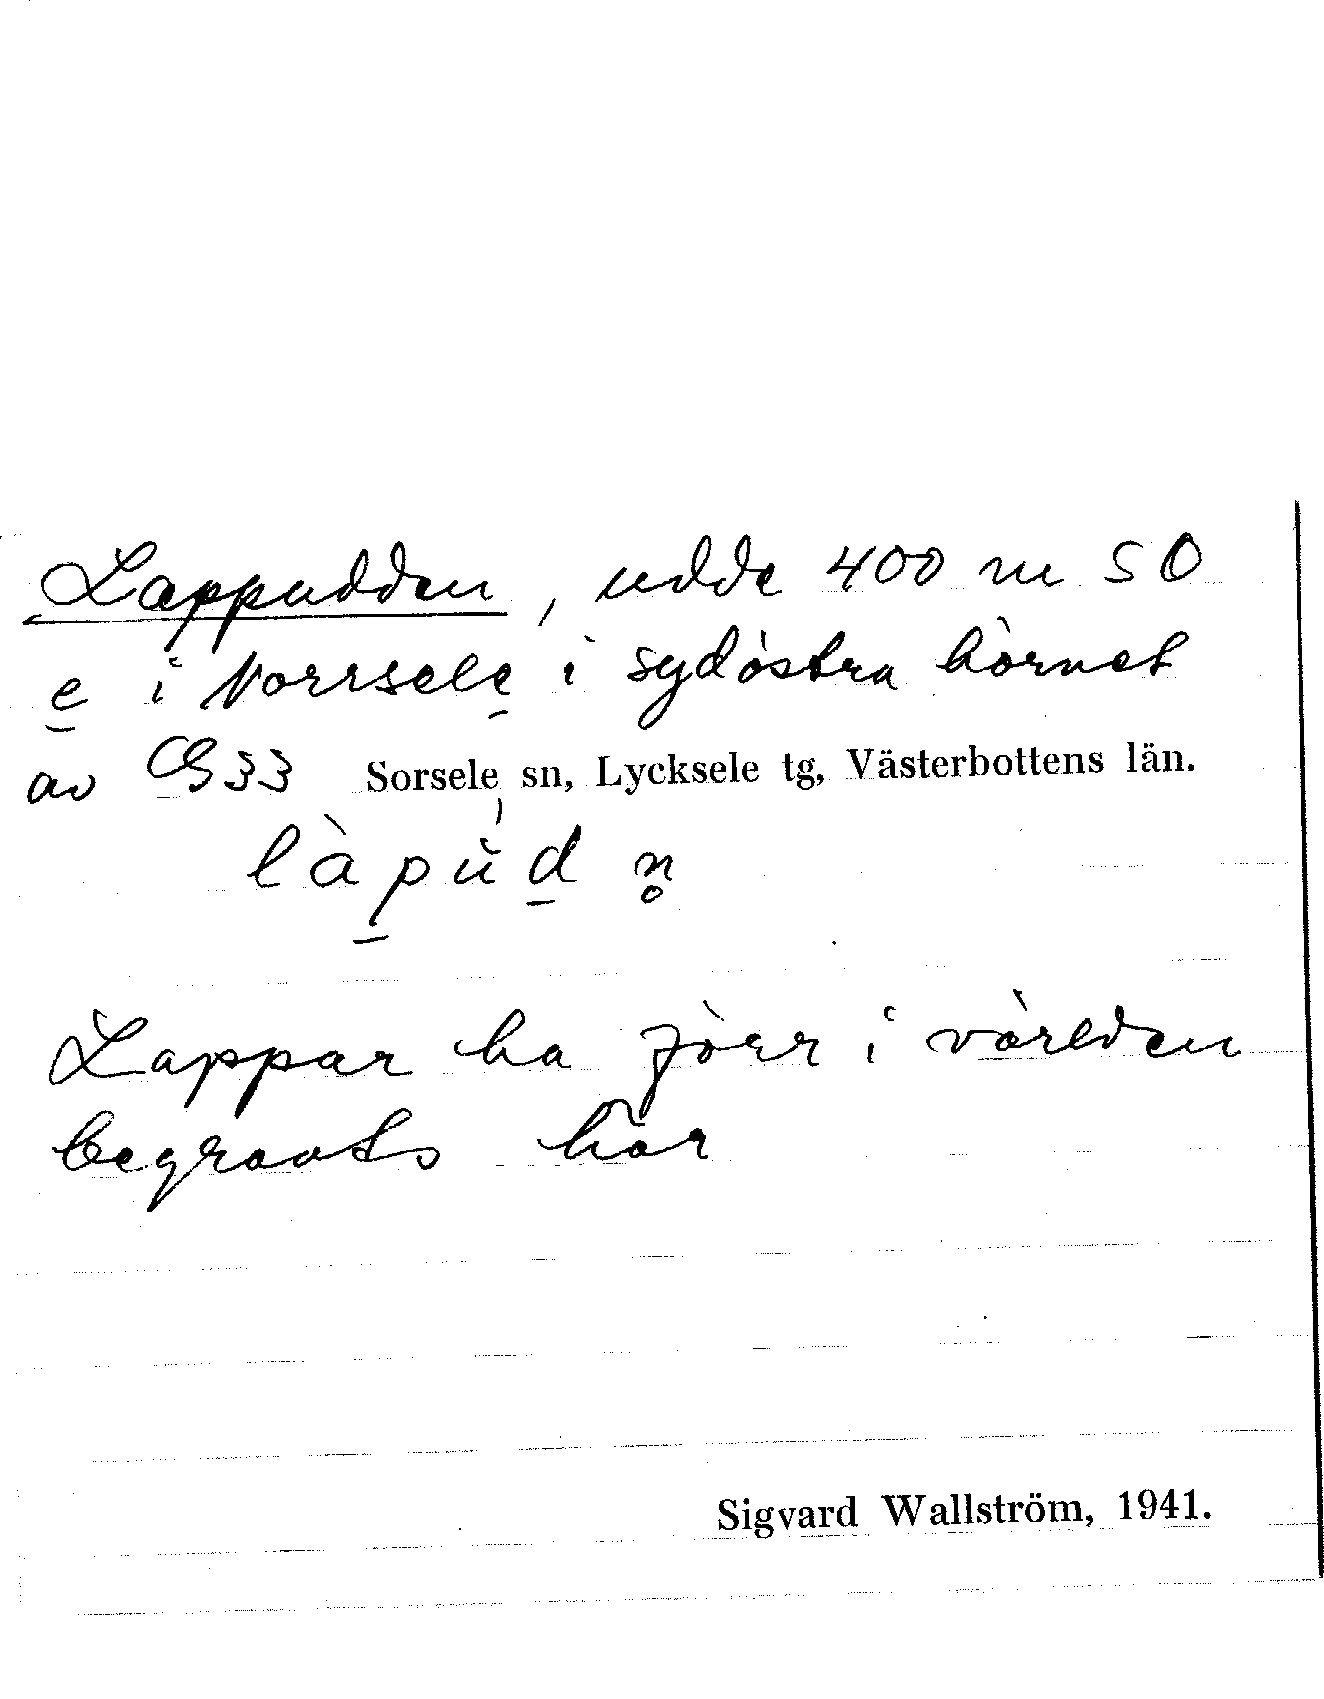 Lappudden, udde 400 m SO
e i Norrsele i sydöstra hörnet
av C933 Sorsele sn, Lycksele tg, Västerbottens län.
làpùd n̥
Lappar ha förr i världen
begravts här
Sigvard Wallström, 1941.